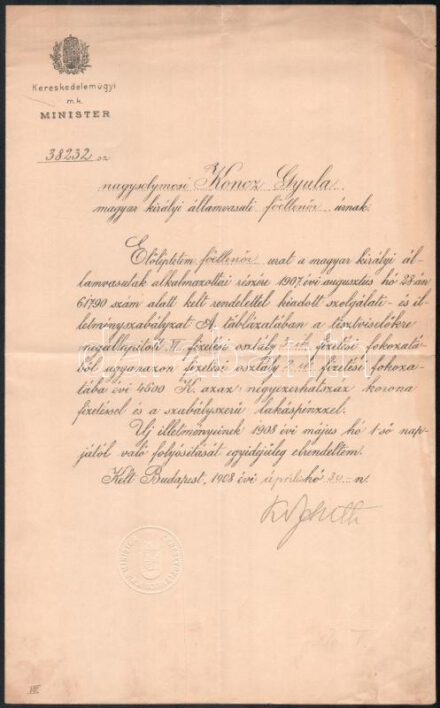 Kereskedelemügyi
m.k.
MINISTER
38232 sz.
nagysolymosi Koncz Gyula
magyar királyi államvasuti főellenőr úrnak.
Előléptetem főellenőr urat a magyar királyi ál-
lamvasutak alkalmazottai részére 1907 évi augusztus hó 23-án
61790 szám alatt kelt rendelettel kiadott szolgálati- és il-
letményszabályzat A táblázatában a tisztviselőkre
megállapított VI fizetési osztály fizetési fokozatá-
ból ugyanazon fizetési osztály fizetési fokoza-
tába évi K. azaz korona
fizetéssel és a szabályszerü lakáspénzzel.
Uj illetményeinek 1908 évi május hó 1-ső nap-
jától való folyósitását egyidejüleg elrendeltem.
Kelt Budapest, 1908 évi április hó 30-n.
VII